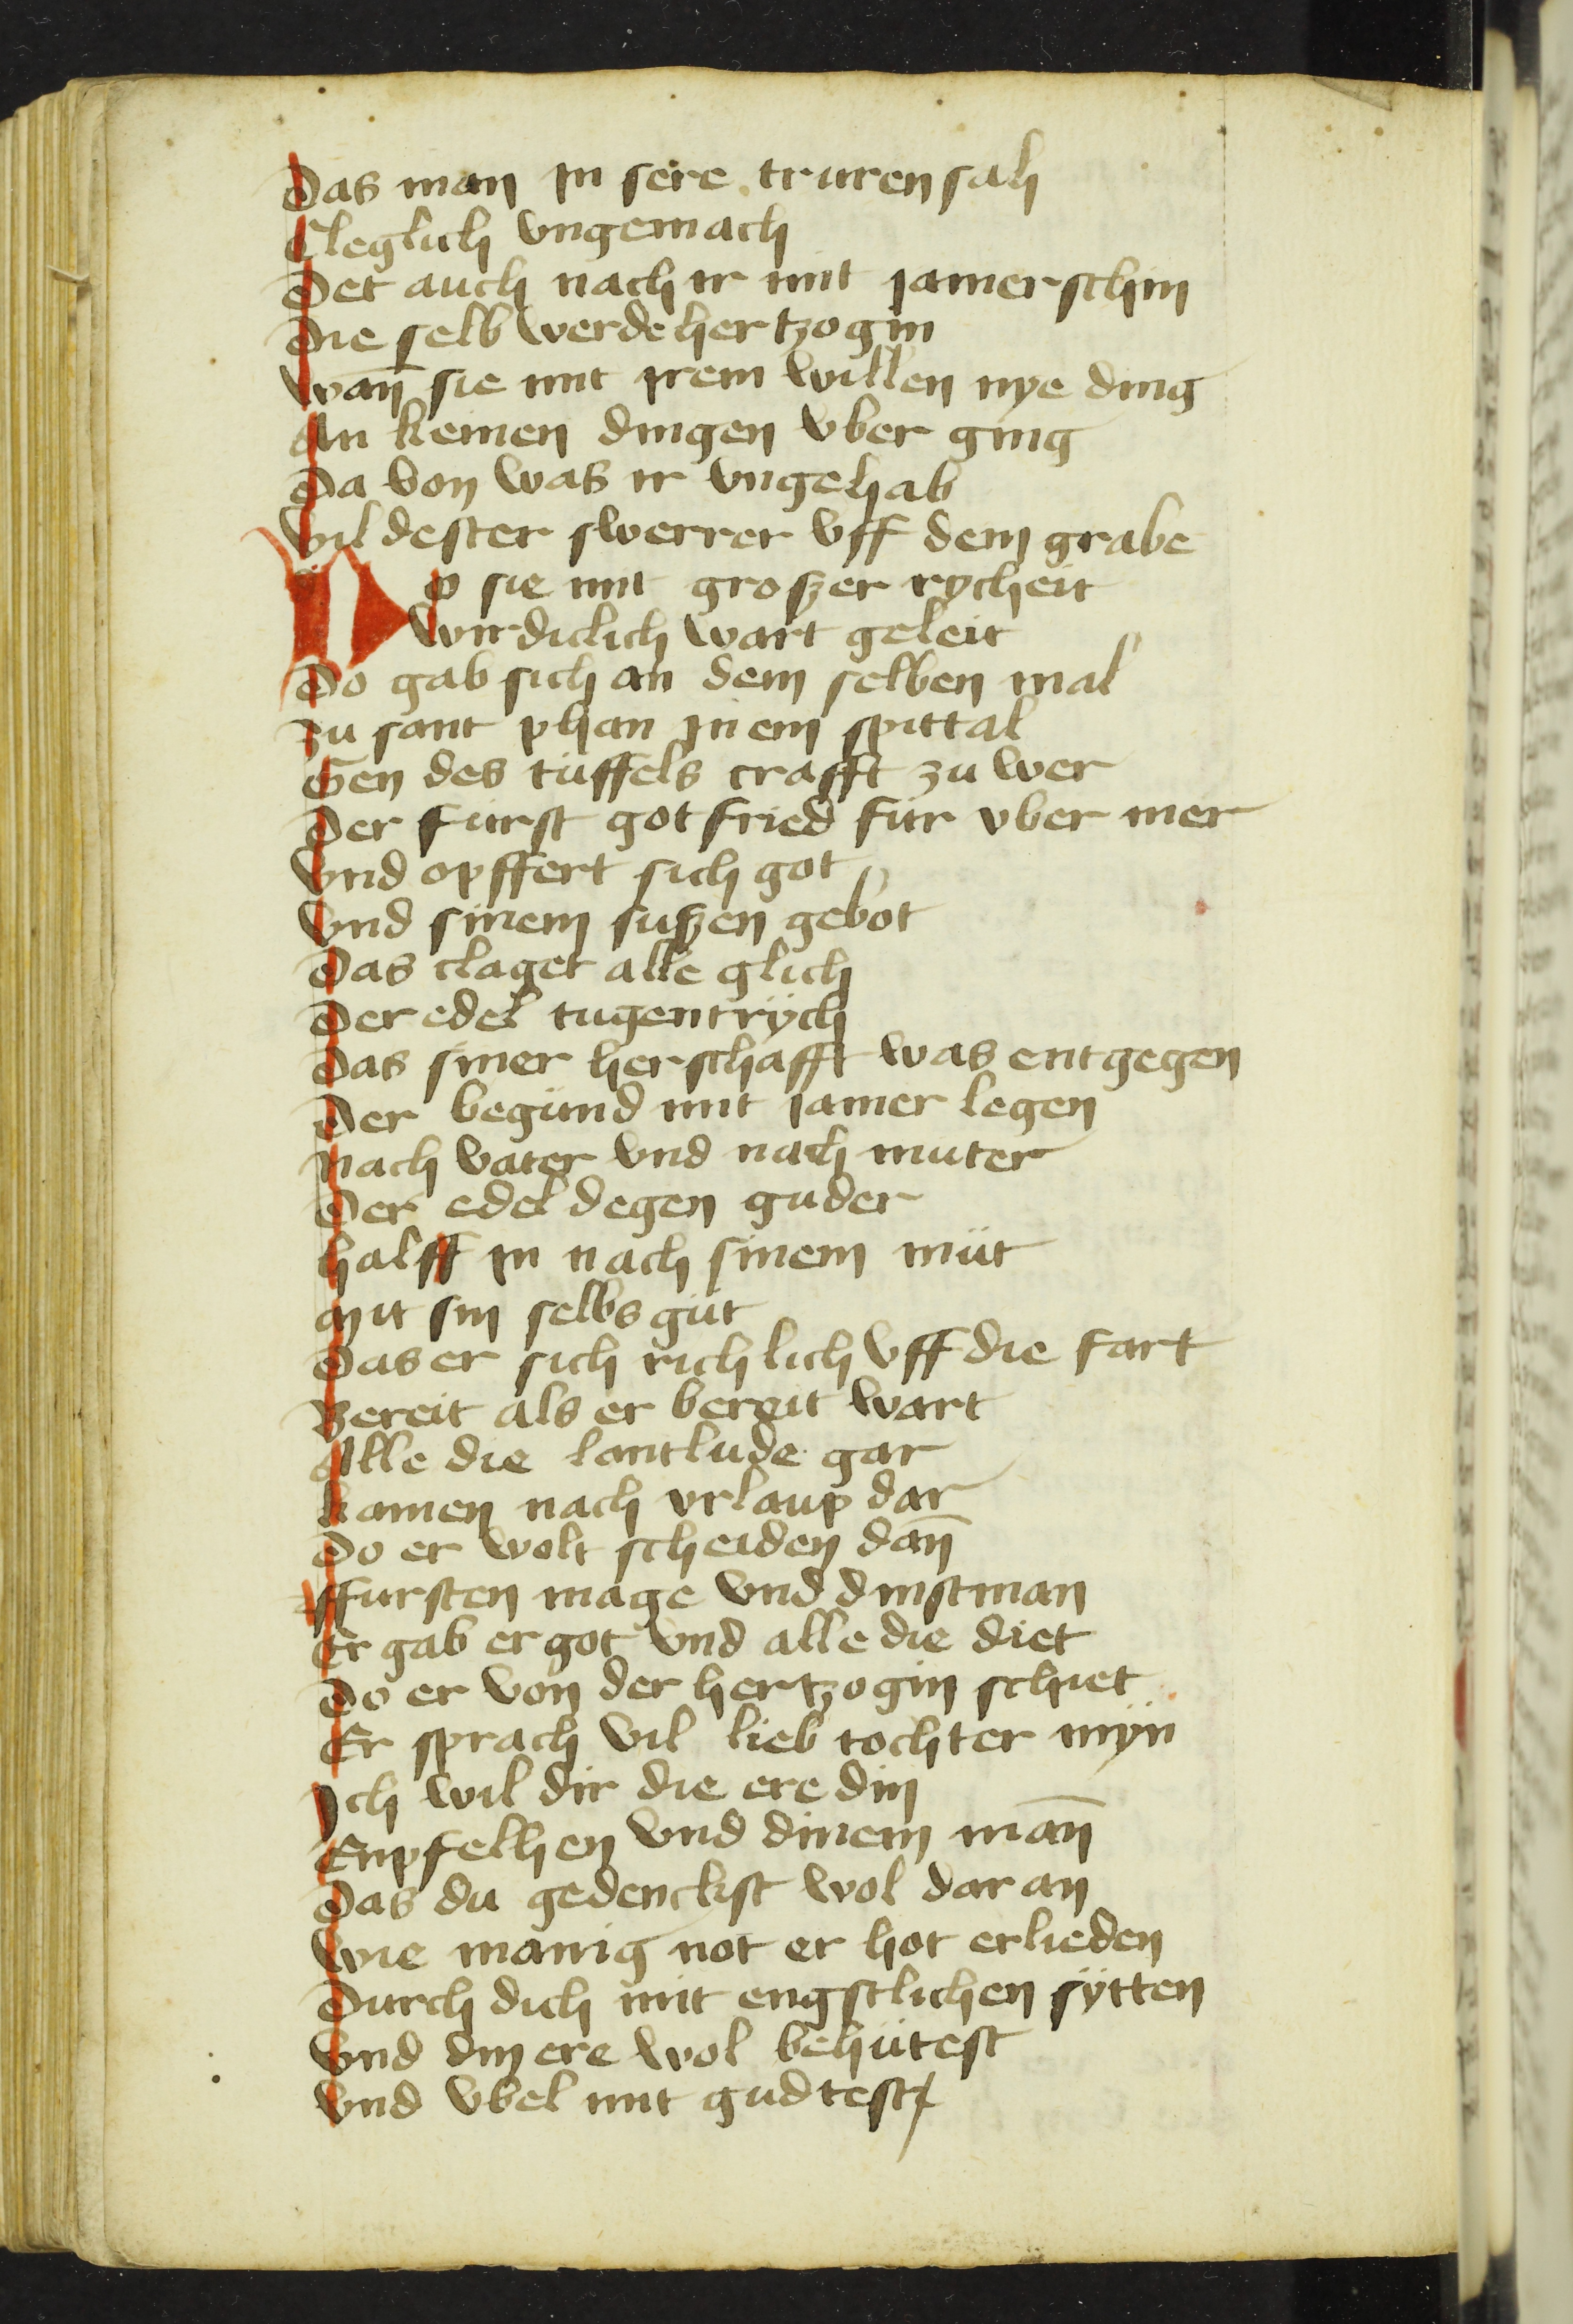 Das man jn sere truren sah
Cleglich vngemach
Det auch nach ir mit jamer schin
Die selb werde hertzogin
wan̄ sie mit jrem willen nye ding
An keinen dingen vber ging
Da von was ir vngehab
vil dester swerrer vff dem grabe
Do sie mit groszer rycheit
wirdiclich wart geleit
Do gab sich an dem selben mal
zu sant johan jn ein spittal
Gen des tuffels crafft zu wer
Der furst gotfried für vber mer
vnd opffert sich got
vnd sinem suszen gebot
Das claget alle glich
Der edel tugentrÿch
Das siner herschafft was entgegen
Der begünd mit jamer legen
Nach vater vnd nach muter
Der edel degen guder
halff jn nach sinem müt
mit sin selbs güt
Das er sich richlich vff die fart
Bereit als er bereit wart
Alle die lantlude gar
kamen nach vrlaup dar
Do er wolt scheiden dan̄
ffursten mage vnd dinstman
Er gab er got vnd alle die diet
Do er von der hertzogin schiet
Er sprach vil lieb tochter mÿn
Ich wil dir die ere din
Enpfelhen vnd dinem man̄
Das du gedenckst wol dar an
wie manig not er hot erlieden
Durch dich mit engstlichen sÿtten
vnd din ere wol behütest
vnd vbel mit gudtest